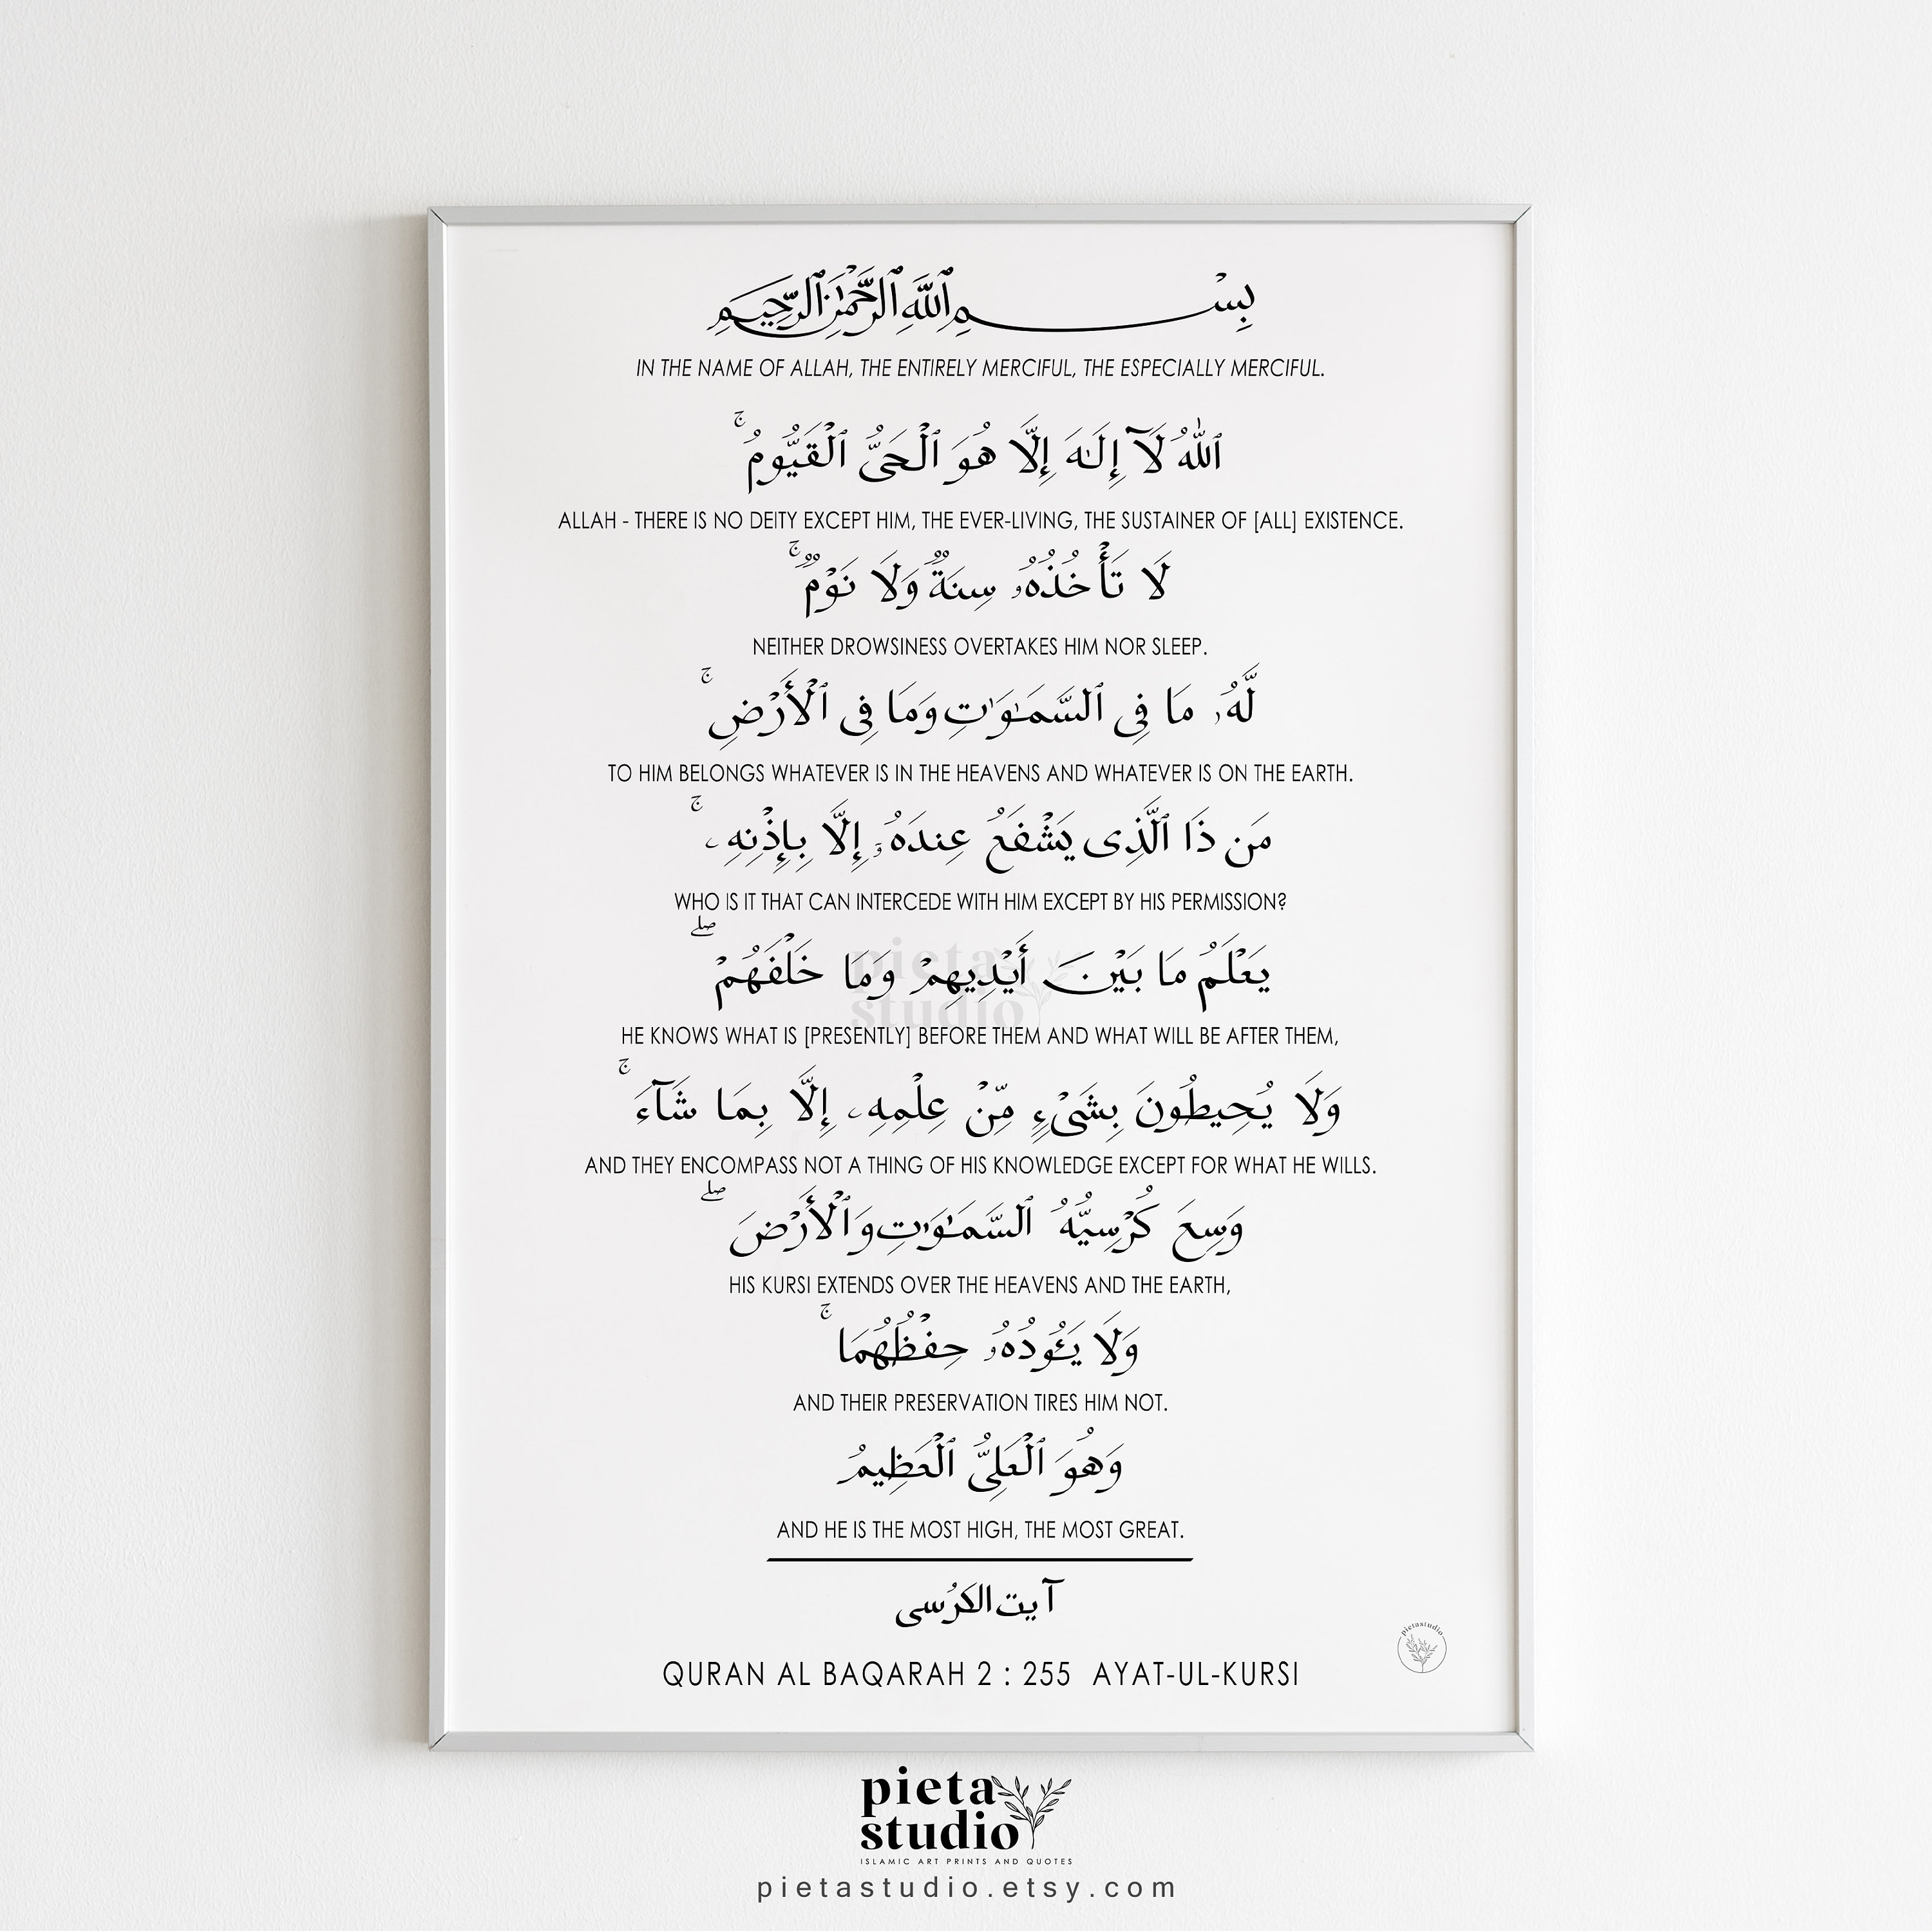 بِسْمِ ٱللَّهِ ٱلرَّحْمَٰنِ ٱلرَّحِيمِ
IN THE NAME OF ALLAH, THE ENTIRELY MERCIFUL, THE ESPECIALLY MERCIFUL.
ٱللَّهُ لَآ إِلَـٰهَ إِلَّا هُوَ ٱلْحَىُّ ٱلْقَيُّومُ ۚ
ALLAH - THERE IS NO DEITY EXCEPT HIM, THE EVER-LIVING, THE SUSTAINER OF [ALL] EXISTENCE.
لَا تَأْخُذُهُۥ سِنَةٌ وَلَا نَوْمٌ ۚ
NEITHER DROWSINESS OVERTAKES HIM NOR SLEEP.
لَّهُۥ مَا فِى ٱلسَّمَـٰوَٰتِ وَمَا فِى ٱلْأَرْضِ ۚ
TO HIM BELONGS WHATEVER IS IN THE HEAVENS AND WHATEVER IS ON THE EARTH.
مَن ذَا ٱلَّذِى يَشْفَعُ عِندَهُۥٓ إِلَّا بِإِذْنِهِۦ ۚ
WHO IS IT THAT CAN INTERCEDE WITH HIM EXCEPT BY HIS PERMISSION?
يَعْلَمُ مَا بَيْنَ أَيْدِيهِمْ وَمَا خَلْفَهُمْ ۖ
HE KNOWS WHAT IS [PRESENTLY] BEFORE THEM AND WHAT WILL BE AFTER THEM,
وَلَا يُحِيطُونَ بِشَىْءٍ مِّنْ عِلْمِهِۦ إِلَّا بِمَا شَآءَ ۚ
AND THEY ENCOMPASS NOT A THING OF HIS KNOWLEDGE EXCEPT FOR WHAT HE WILLS.
وَسِعَ كُرْسِيُّهُ ٱلسَّمَـٰوَٰتِ وَٱلْأَرْضَ ۖ
HIS KURSI EXTENDS OVER THE HEAVENS AND THE EARTH,
وَلَا يَـُٔودُهُۥ حِفْظُهُمَا ۚ
AND THEIR PRESERVATION TIRES HIM NOT.
وَهُوَ ٱلْعَلِىُّ ٱلْعَظِيمُ
AND HE IS THE MOST HIGH, THE MOST GREAT.
آيت الكرُسى
QURAN AL BAQARAH 2 : 255 AYAT-UL-KURSI
pietastudio
pieta
studio
pieta
studio
ISLAMIC ART PRINTS AND QUOTES
pietastudio.etsy.com